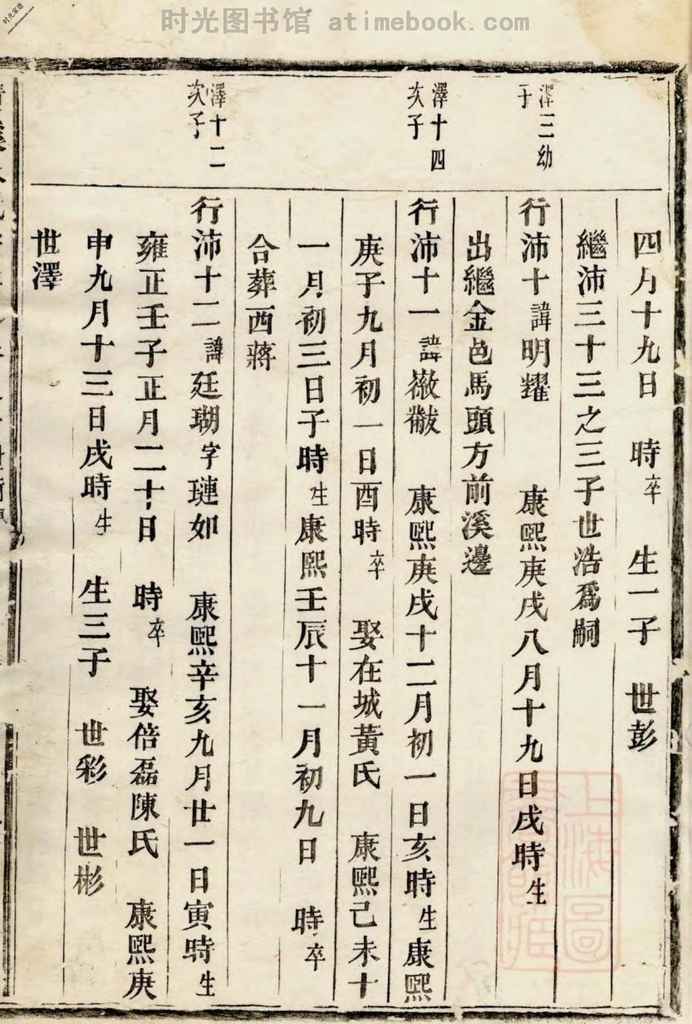 时光图书馆 atimebook.com
四月十九日 時卒 生一子 世彭
繼沛三十三之三子世浩爲嗣
澤三幼子
行沛十諱明耀 康熙庚戌八月十九日戌時生
出繼金邑馬頭方前溪邊
澤十四次子
行沛十一諱徽黻 康熙庚戌十二月初一日亥時生康熙
庚子九月初一日酉時卒 娶在城黃氏 康熙己未十
一月初三日子時生康熙壬辰十一月初九日 時卒
合葬西蔣
澤十二次子
行沛十二諱廷瑚字璉如 康熙辛亥九月廿一日寅時生
雍正壬子正月二十日 時卒 娶倍磊陳氏 康熙庚
申九月十三日戌時生 生三子 世彩 世彬
世澤
上海圖